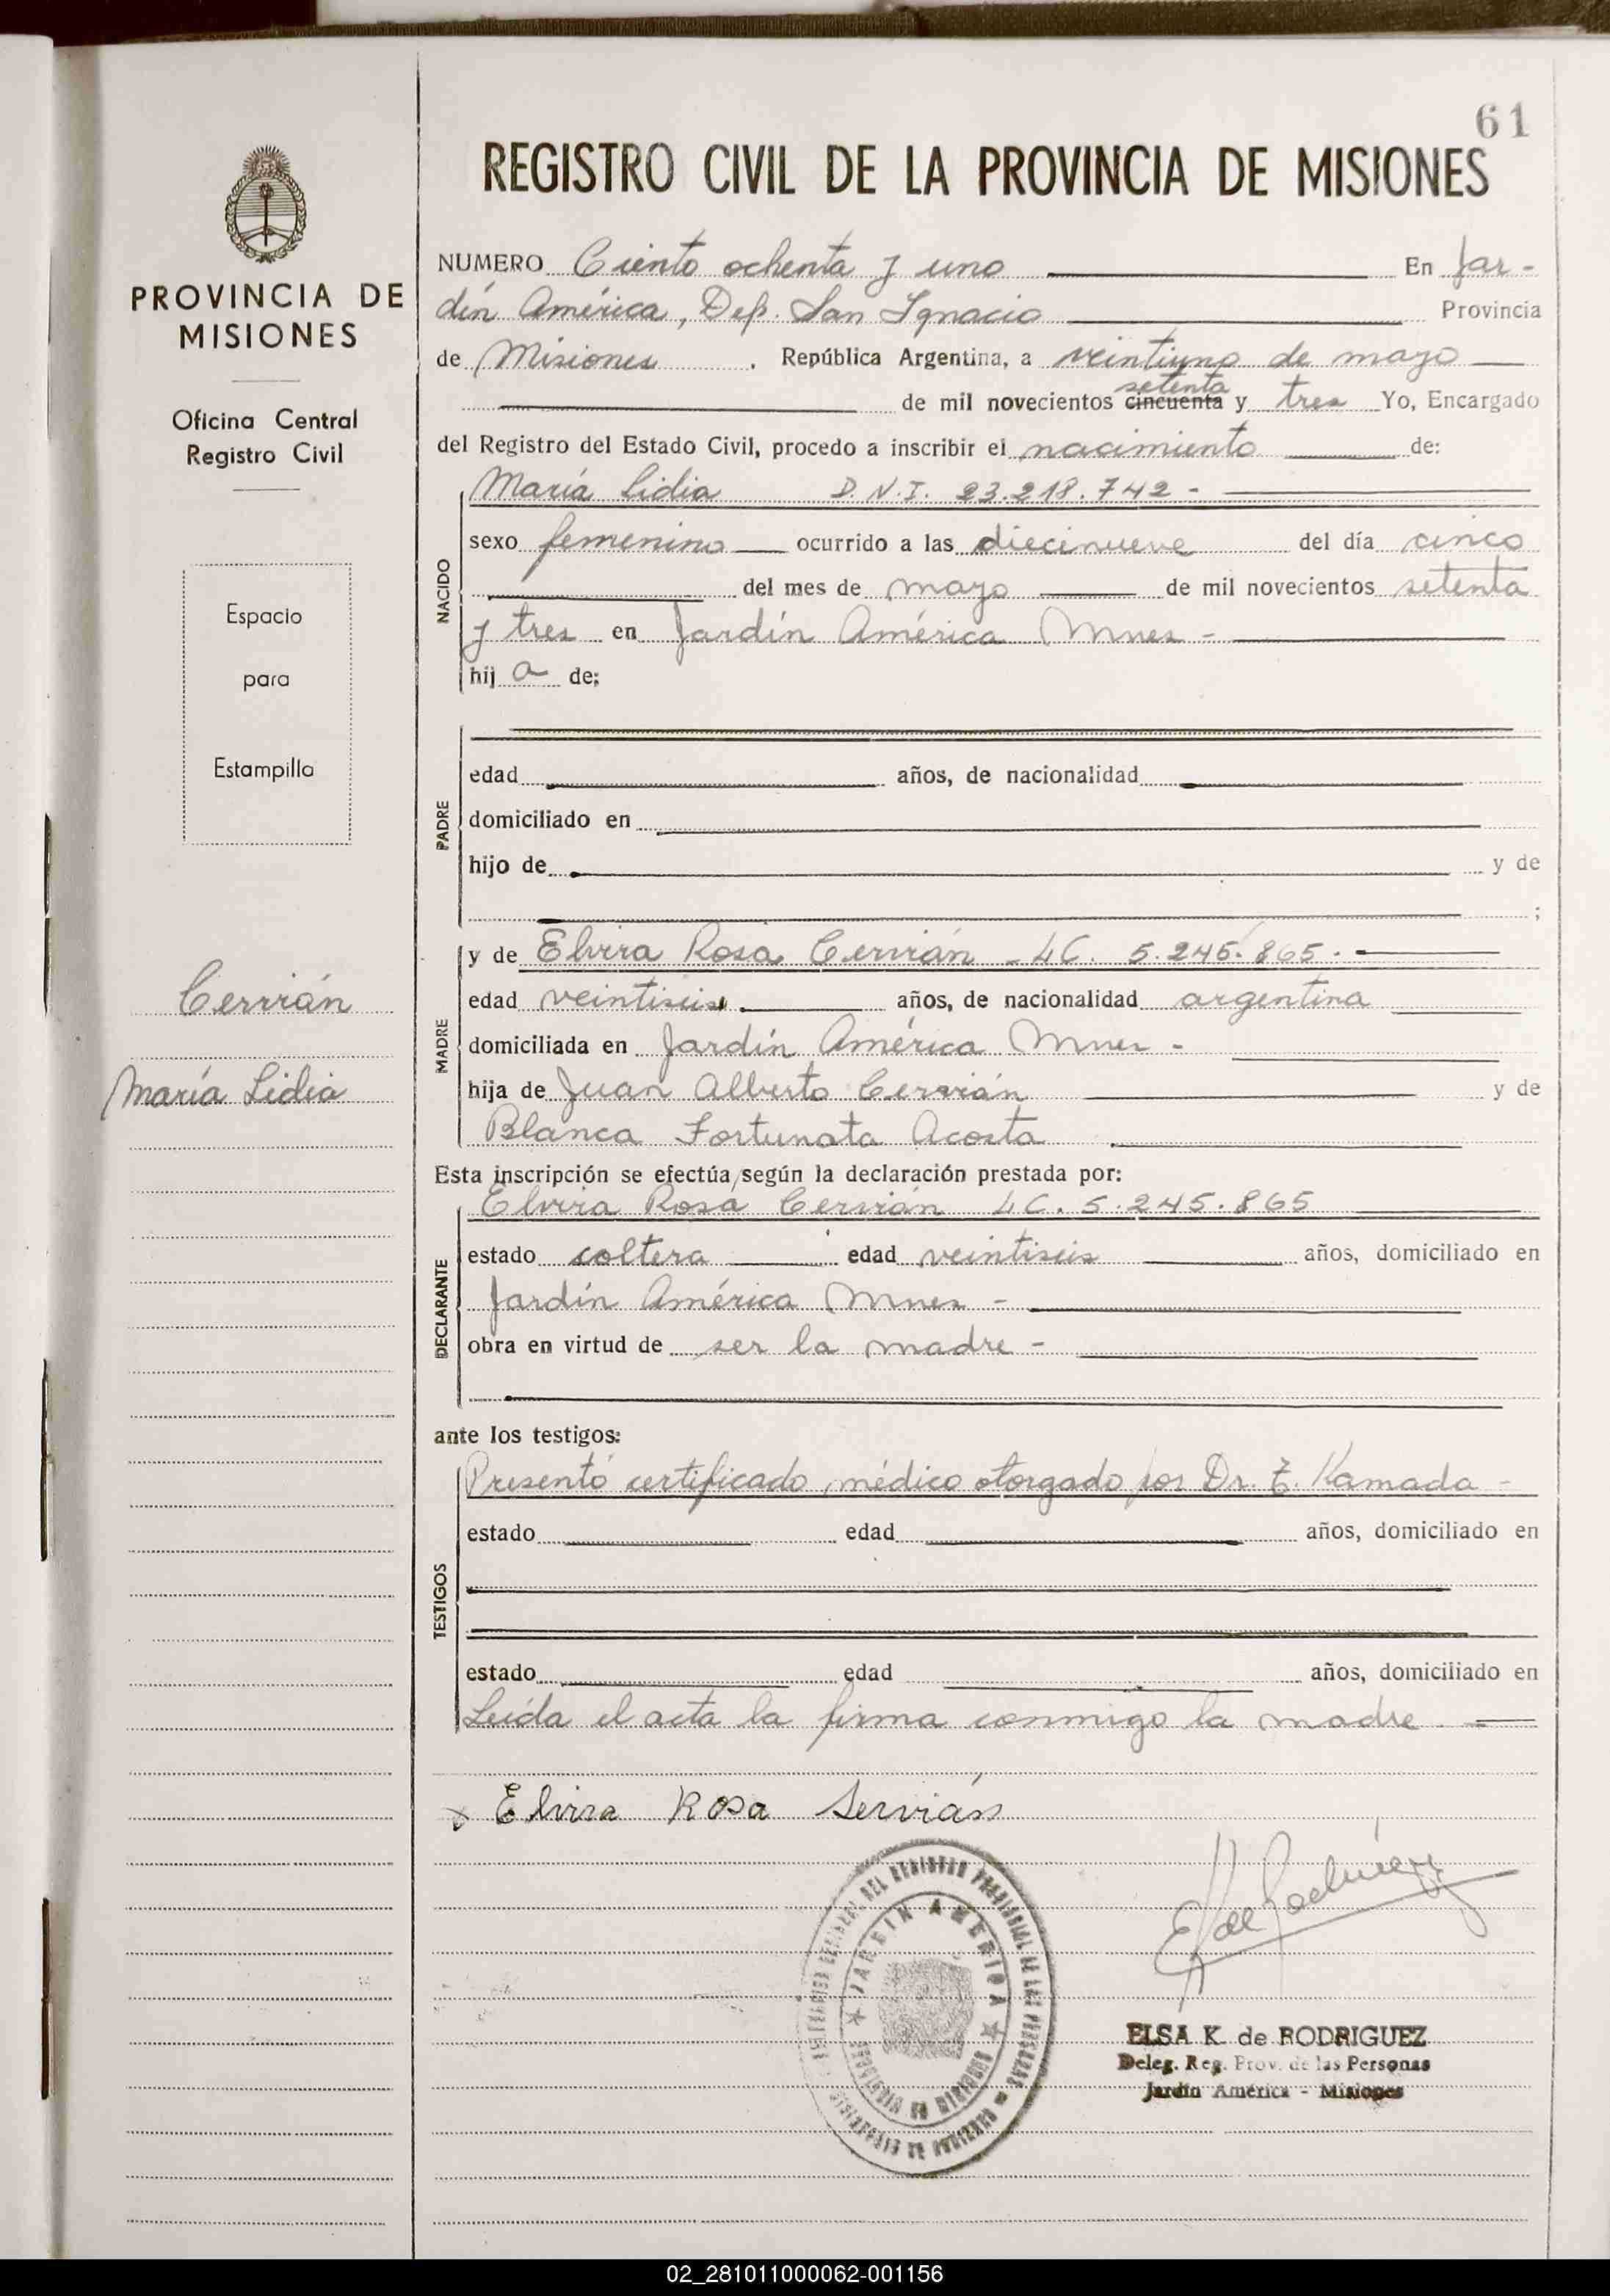 61
REGISTRO CIVIL DE LA PROVINCIA DE MISIONES
PROVINCIA DE
MISIONES
Oficina Central
Registro Civil
Espacio
para
Estampilla
Cervián
María Lidia
NUMERO Ciento ochenta y uno En Jar-
dín América, Dep. San Ignacio Provincia
de Misiones. República Argentina, a veintiuno de mayo
setenta
de mil novecientos cincuenta y tres Yo, Encargado
del Registro del Estado Civil, procedo a inscribir el nacimiento de:
María Lidia D.N.I. 23.218.742 -
NACIDO
sexo femenino ocurrido a las diecinueve del día cinco
del mes de mayo de mil novecientos setenta
y tres en Jardín América Mnes -
hija de:
PADRE
edad años, de nacionalidad
domiciliado en
hijo de y de
;
MADRE
y de Elvira Rosa Cervián - LC. 5.245.865.-
edad veintiseis años, de nacionalidad argentina
domiciliada en Jardín América Mnes -
hija de Juan Alberto Cervián y de
Blanca Fortunata Acosta
Esta inscripción se efectúa según la declaración prestada por:
Elvira Rosa Cervián LC. 5.245.865
DECLARANTE
estado soltera edad veintiseis años, domiciliado en
Jardín América Mnes -
obra en virtud de ser la madre -
ante los testigos:
Presentó certificado médico otorgado por Dr. E. Kamada -
TESTIGOS
estado edad años, domiciliado en
estado edad años, domiciliado en
Leída el acta la firma conmigo la madre. -
x Elvira Rosa Servián
E K de Rodríguez
JARDIN AMERICA
PROVINCIA DE MISIONES
ELSA K. de RODRIGUEZ
Deleg. Reg. Prov. de las Personas
Jardín América - Misiones
02_281011000062-001156